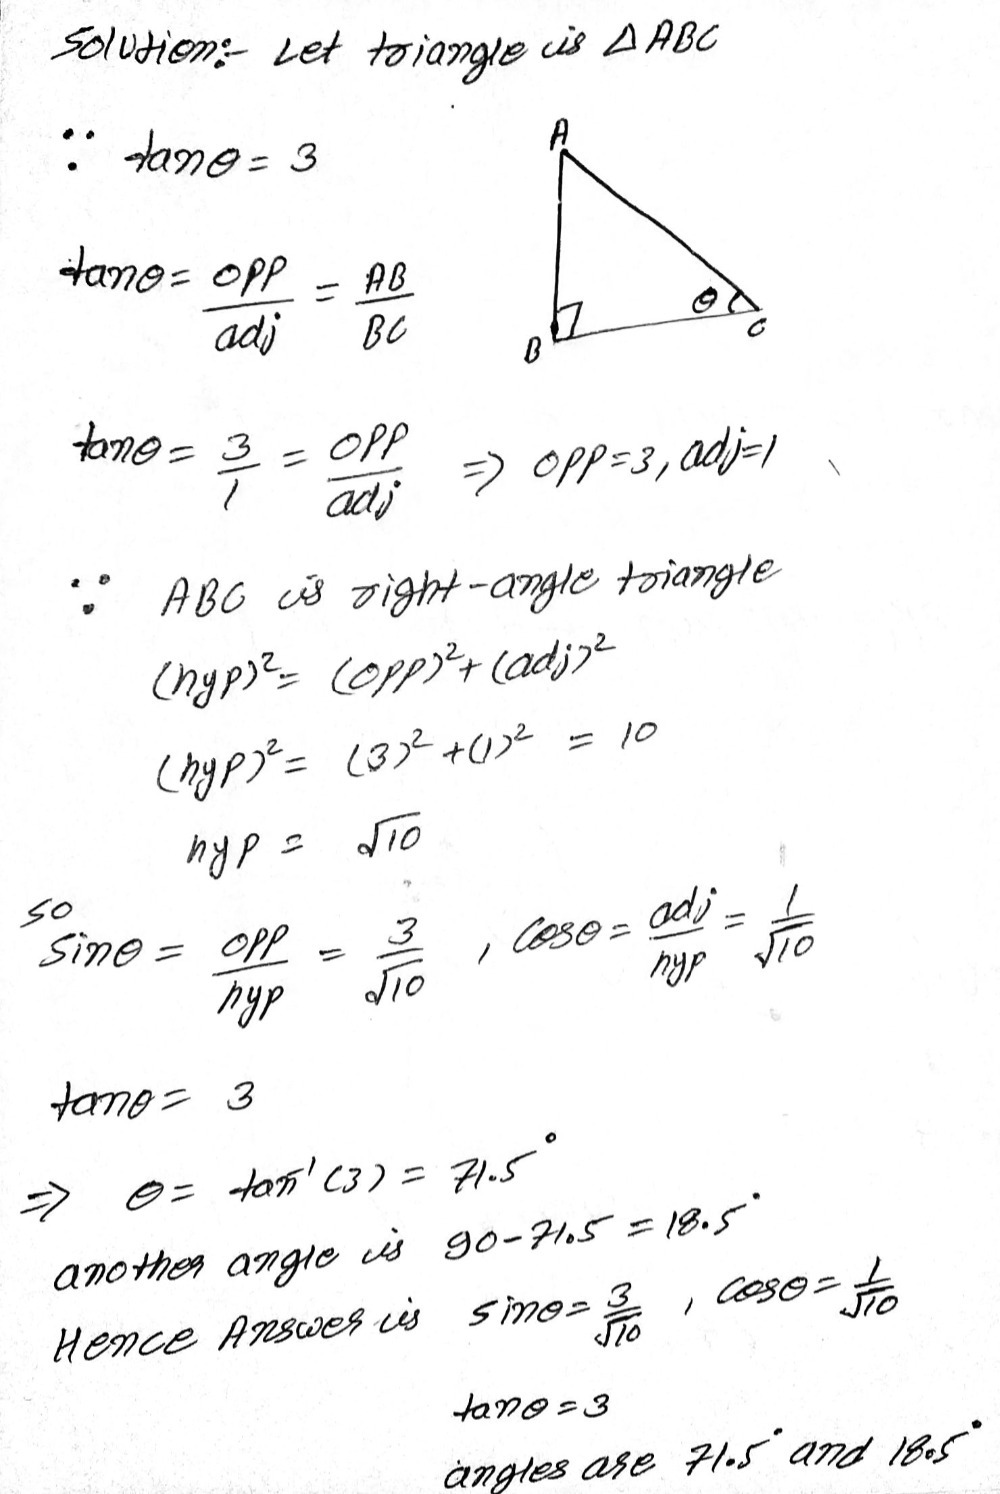 Solution:- Let triangle is △ABC
∵ tanθ = 3
A
B
θ
C
tanθ = opp/adj = AB/BC
tanθ = 3/1 = opp/adj ⇒ opp=3, adj=1
∵ ABC is right-angle triangle
(hyp)² = (opp)² + (adj)²
(hyp)² = (3)² + (1)² = 10
hyp = √10
so
Sinθ = opp/hyp = 3/√10 , Cosθ = adj/hyp = 1/√10
tanθ = 3
⇒ θ = tan⁻¹(3) = 71.5°
another angle is 90-71.5 = 18.5°
Hence Answer is Sinθ = 3/√10 , Cosθ = 1/√10
tanθ = 3
angles are 71.5° and 18.5°